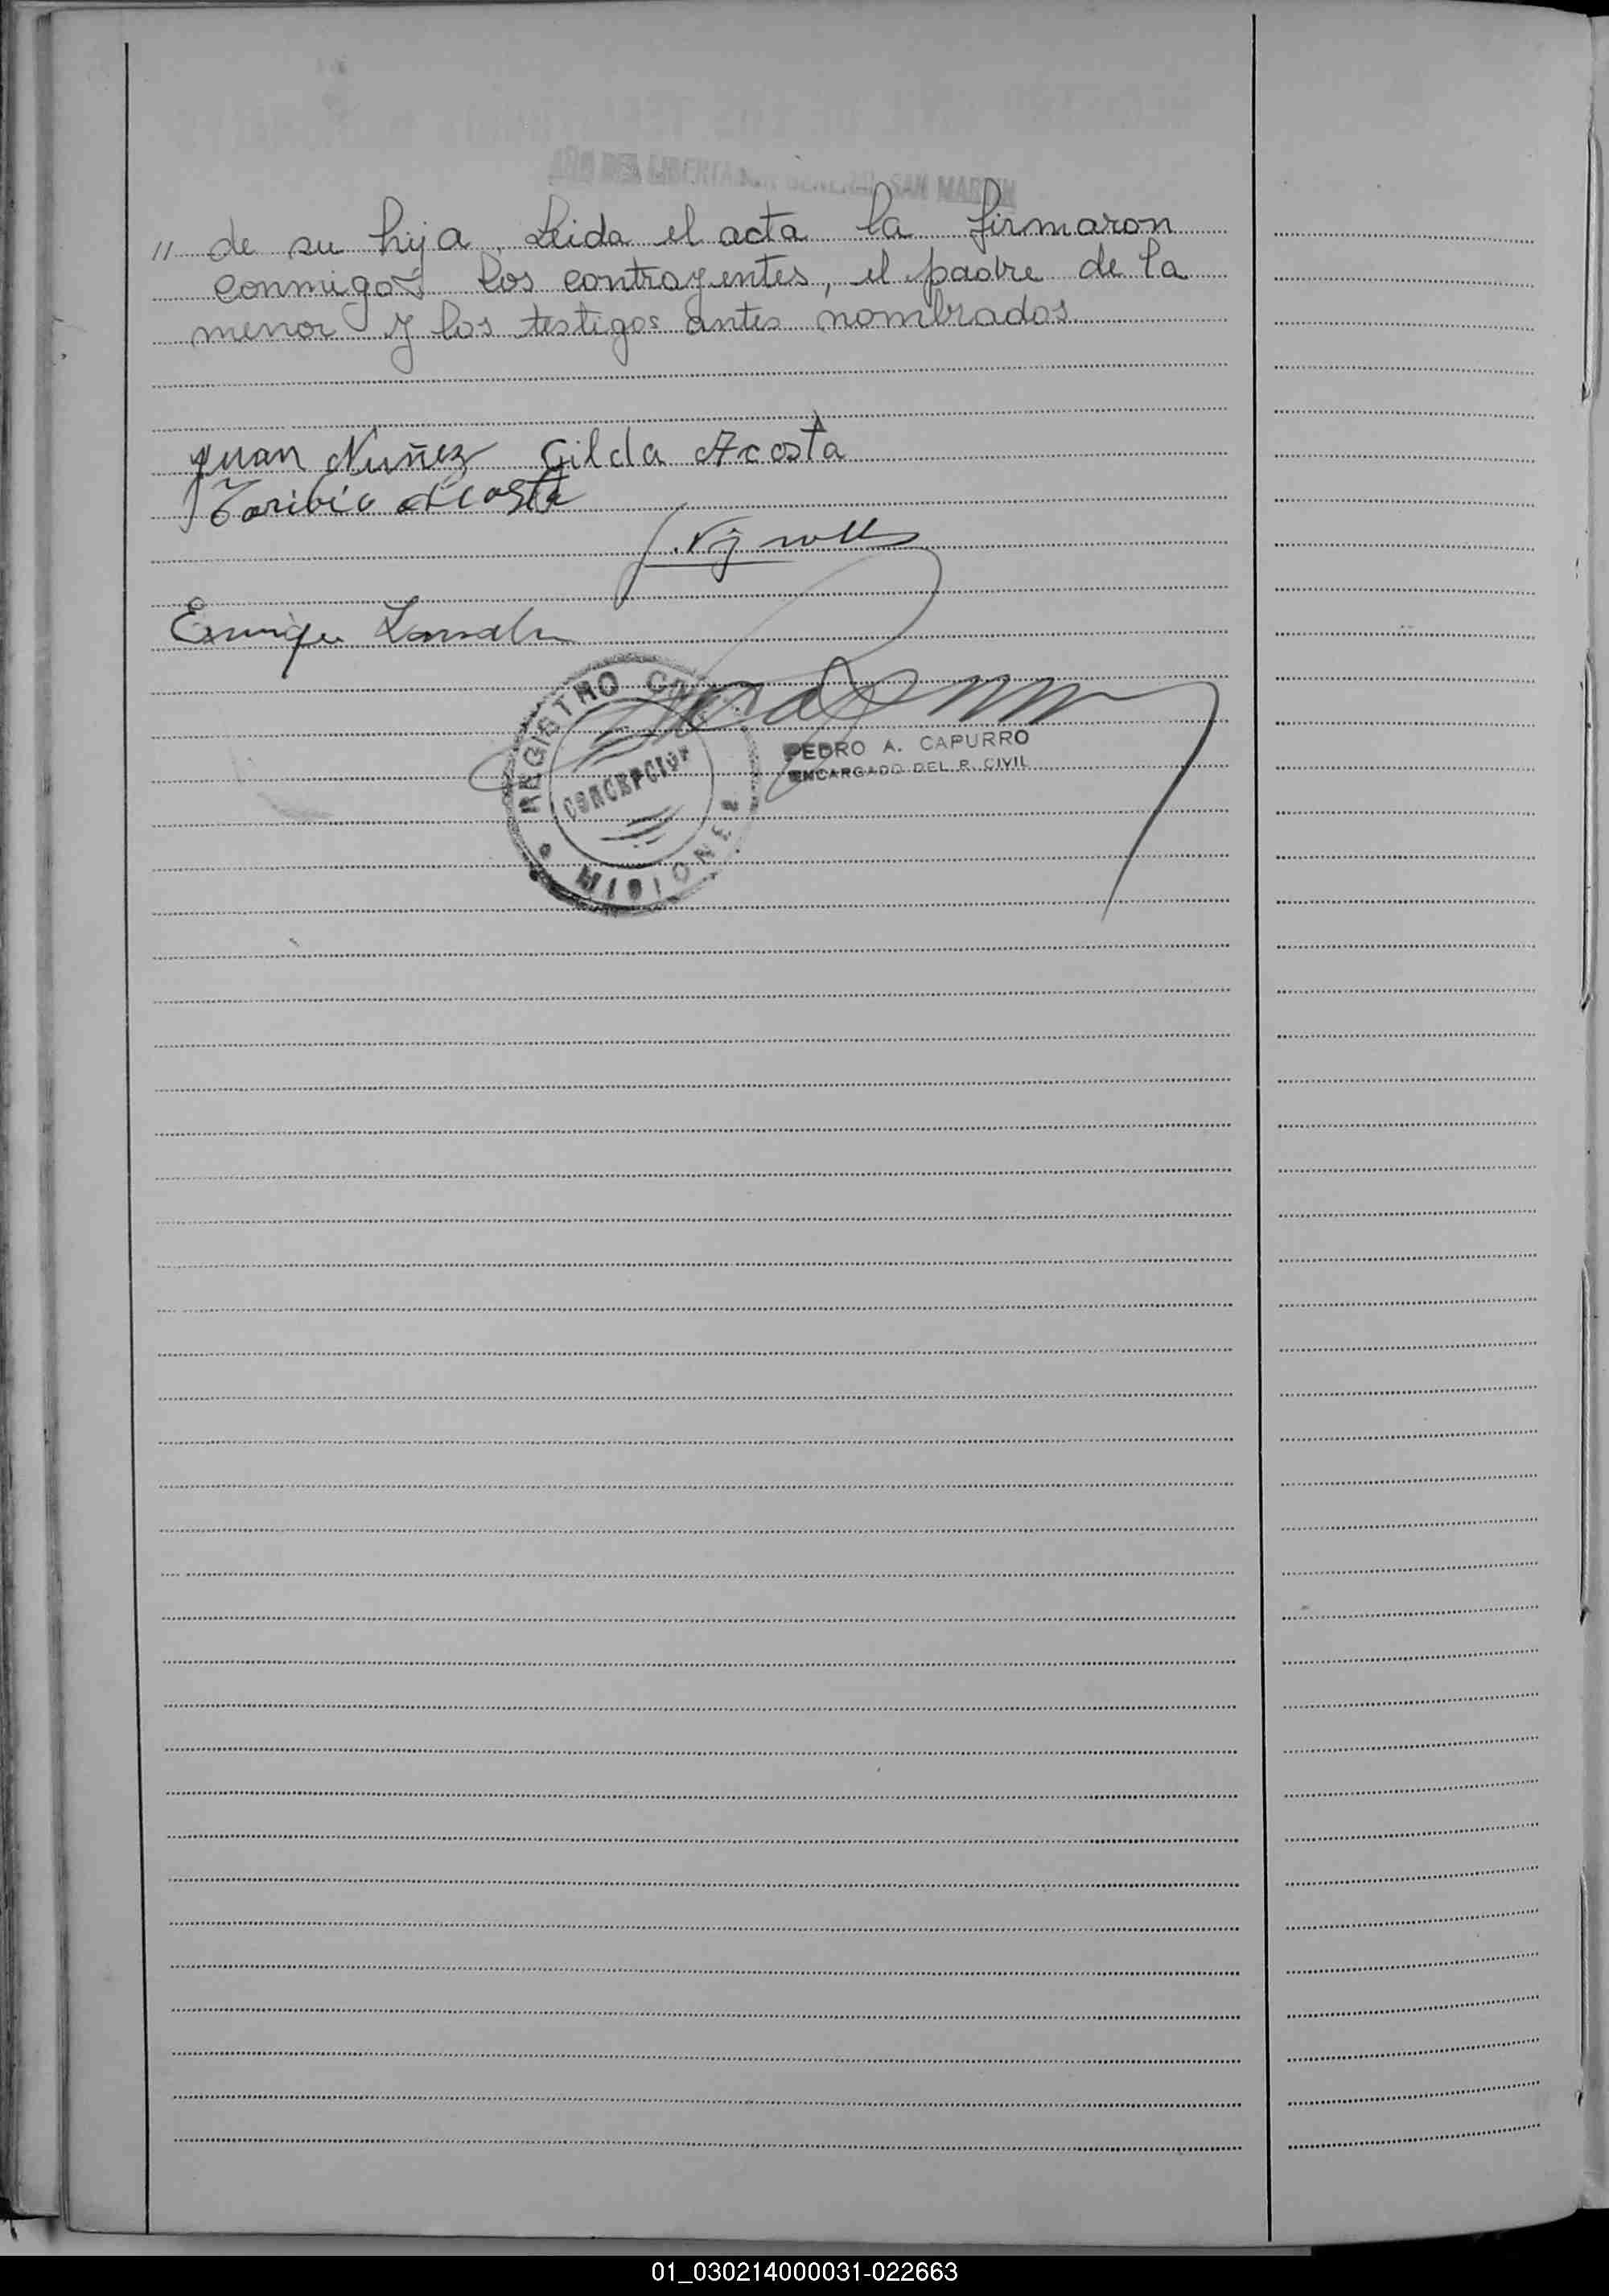 " de su hija. Leida el acta la firmaron
conmigo los contrayentes, el padre de la
menor y los testigos antes nombrados
Juan Nuñez Gilda Acosta
Toribio Acosta
Enrique
REGISTRO CIVIL
CONCEPCION
MISIONES
PEDRO A. CAPURRO
ENCARGADO DEL R. CIVIL
01_030214000031-022663